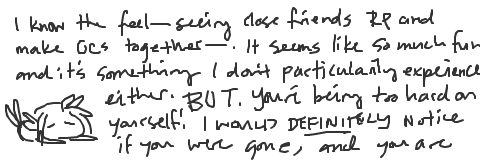 I know the feel—seeing close friends RP and
make OCs together—. It seems like so much fun
and it's something I don't particularly experience
either. BUT. You're being too hard on
yourself! I WOULD DEFINITELY notice
if you were gone, and you are